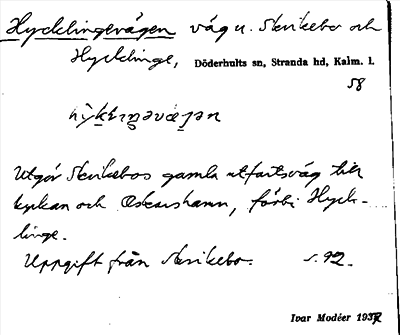 Hycklingevägen väg u. Skrikebo och
Hycklinge, Döderhults sn, Stranda hd, Kalm. l.
58
Utgör Skrikebos gamla utfartsväg till
kyrkan och Oskarshamn, förbi Hyck-
linge.
Uppgift från Skrikebo. s. 92.
Ivar Modéer 1937